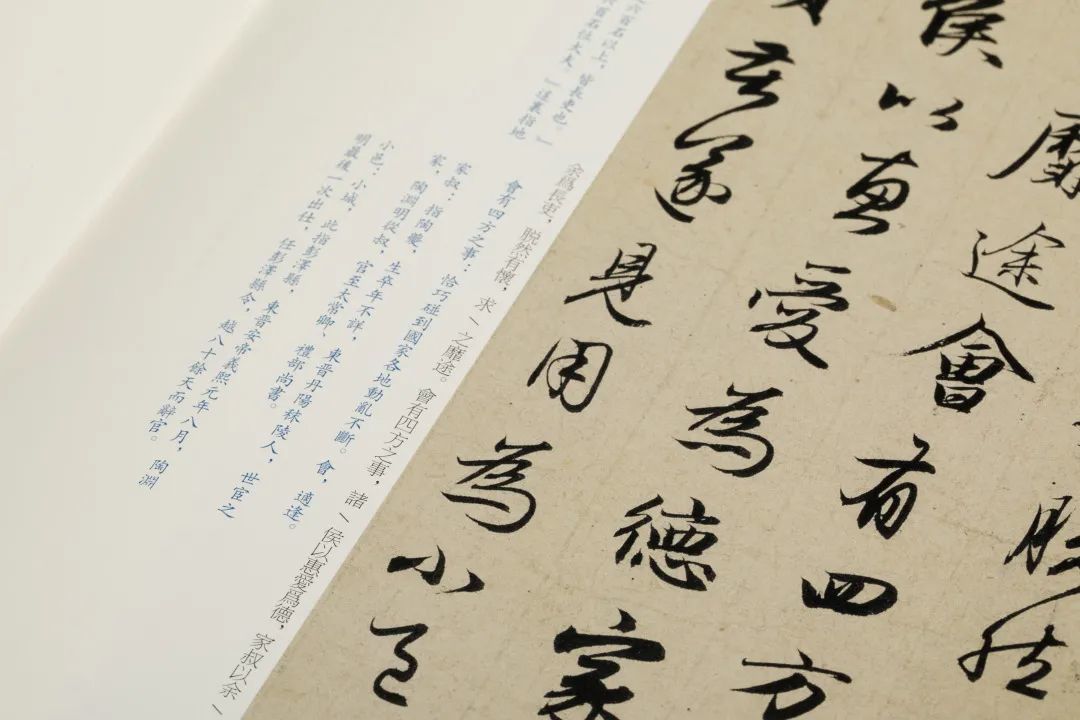 脫然
靡途會有四方
侯以惠愛為德家
苦遂見用為小邑
余爲長吏,脱然有懷,求丶之靡途。會有四方之事,諸丶侯以惠愛爲德,家叔以余丶
六百石以上,皆長吏也。」
六百石位大夫。」這裏指地
會有四方之事:恰巧碰到國家各地動亂不斷。會,適逢。
家叔:指陶夔,生卒年不詳,東晉丹陽秣陵人,世宦之
家,陶淵明從叔,官至太常卿、禮部尚書。
小邑:小城,此指彭澤縣,東晉安帝義熙元年八月,陶淵
明最後一次出仕,任彭澤縣令,越八十餘天而辭官。